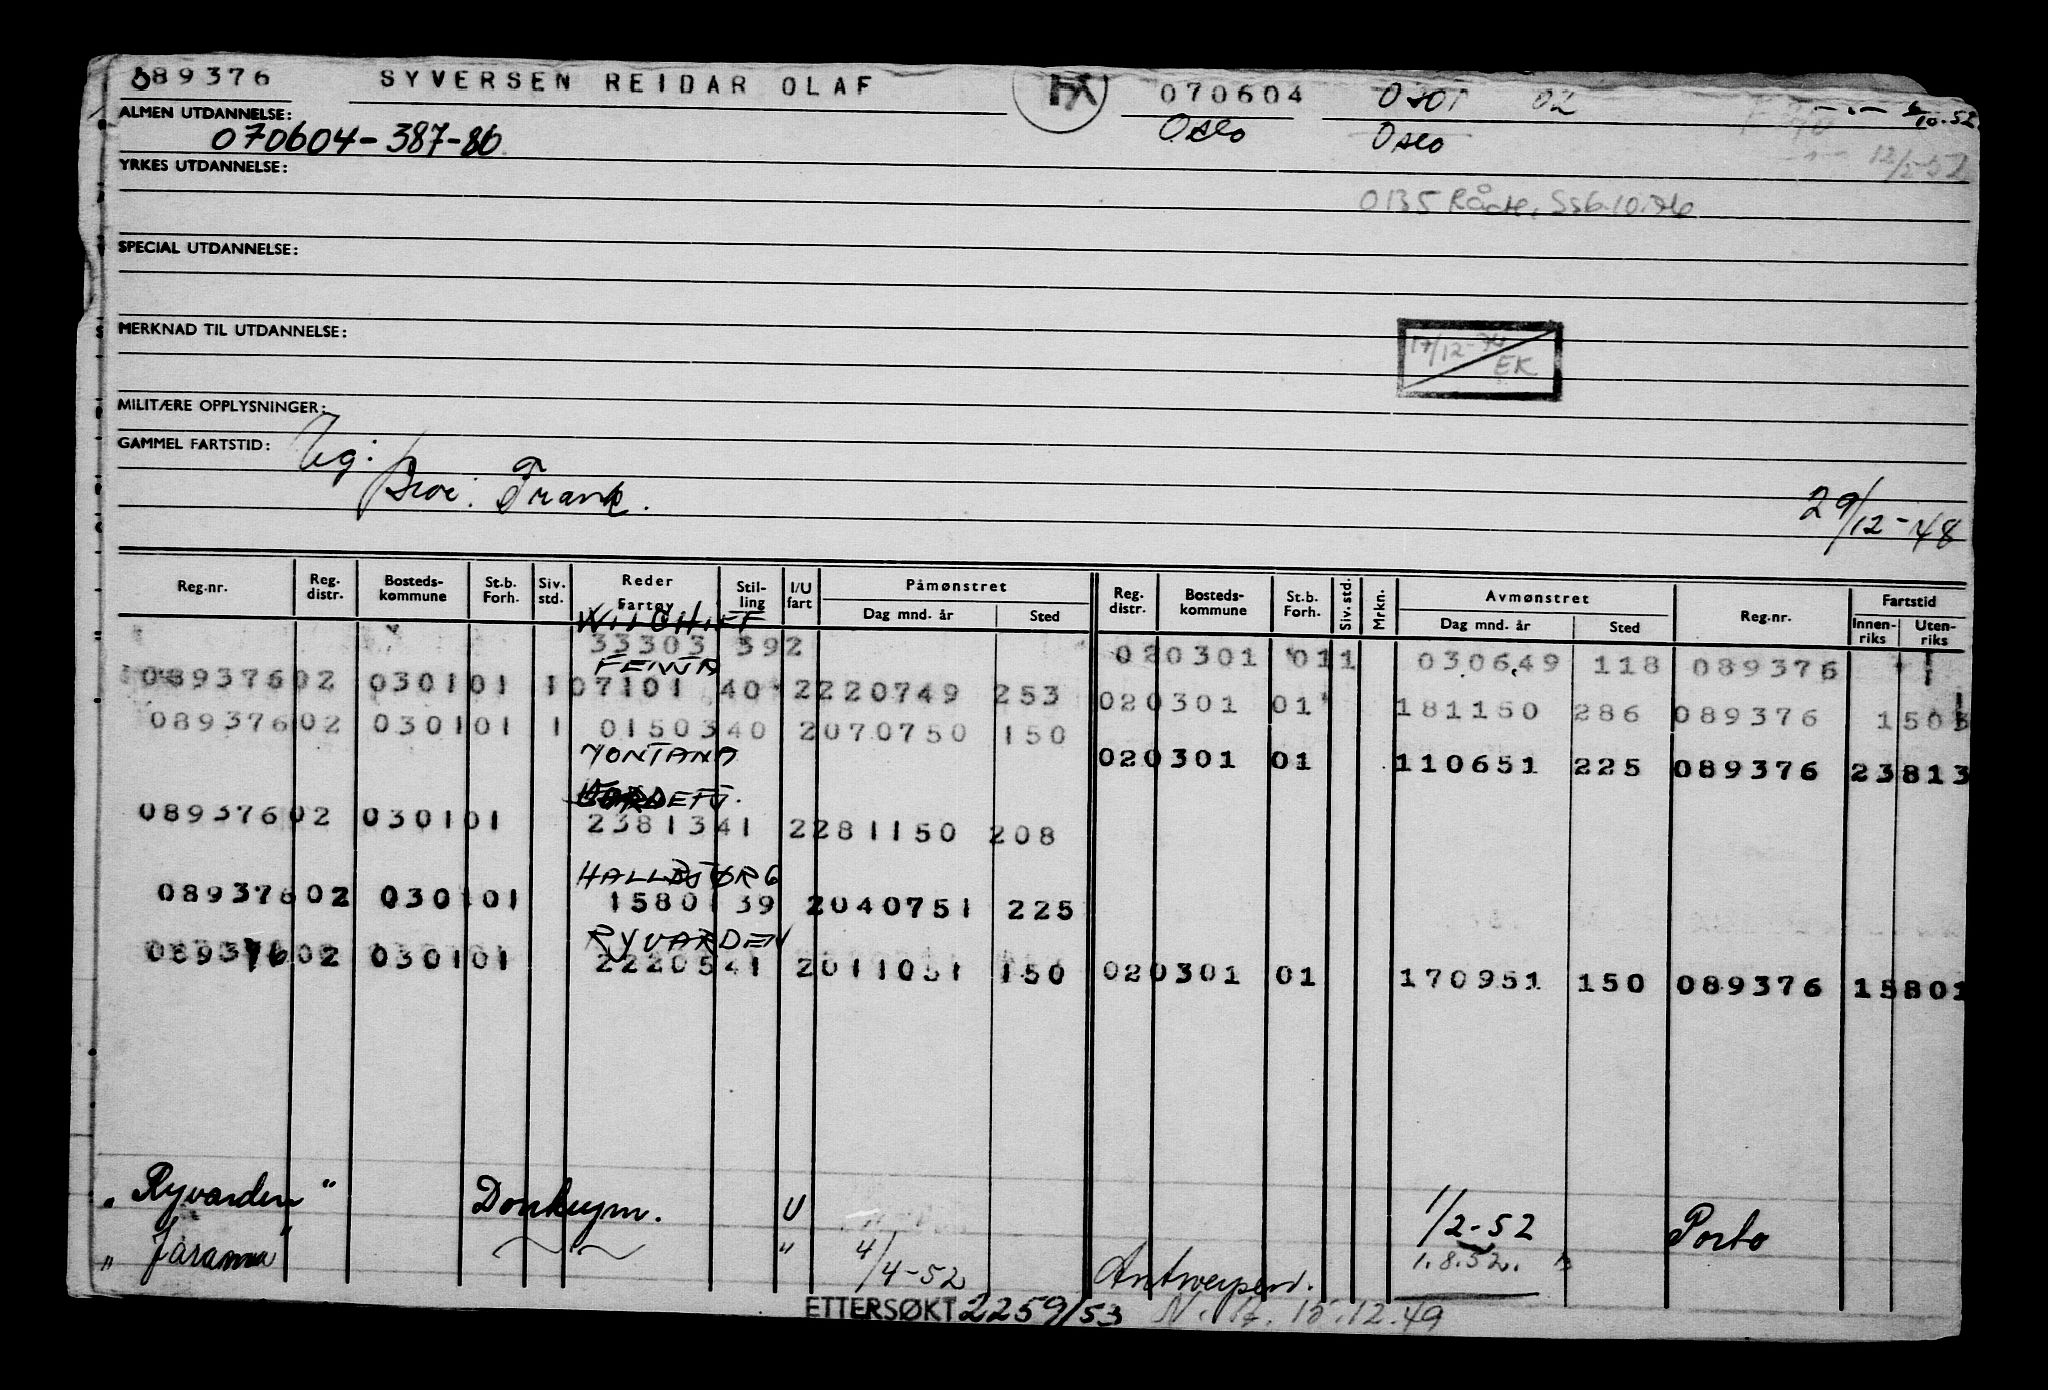 089376 SYVERSEN REIDAR OLAF FX 070604 0301 02 -.- 8/10.52
ALMEN UTDANNELSE: Oslo Oslo
070604-387-86
12/5-52
YRKES UTDANNELSE:
0135 Råde, SSB.10.76
SPECIAL UTDANNELSE:
MERKNAD TIL UTDANNELSE:
17/12-74 EK
MILITÆRE OPPLYSNINGER:
GAMMEL FARTSTID:
Frank.
29/12-48
Reg.nr. Reg. distr. Bosteds-kommune St.b. Forh. Siv. std. Reder Fartøy Stil-ling I/U fart Påmønstret Dag mnd. år Sted Reg. distr. Bosteds-kommune St.b. Forh. Siv. std. Mrkn. Avmønstret Dag mnd. år Sted Reg.nr. Fartstid Innen-riks Uten-riks
33303 392 020301 011 030649 118 089376
FENJA
089376 02 0301 01 1 07101 40 2 220749 253 020301 01 181150 286 089376 1503
089376 02 0301 01 1 01503 40 2 070750 150
MONTANA
020301 01 110651 225 089376 23813
089376 02 0301 01 23813 41 2 281150 208
HALLBJØRG
089376 02 0301 01 15801 39 2 040751 225
RYVARDEN
089376 02 0301 01 22205 41 2 011051 150 020301 01 170951 150 089376 15801
„ Ryvarden " Donkeym. U 1/2-52 Porto
„ Jaranna " " 4/4-52 Antwerpen. 1.8.52.
ETTERSØKT 2259/53 15.12.49